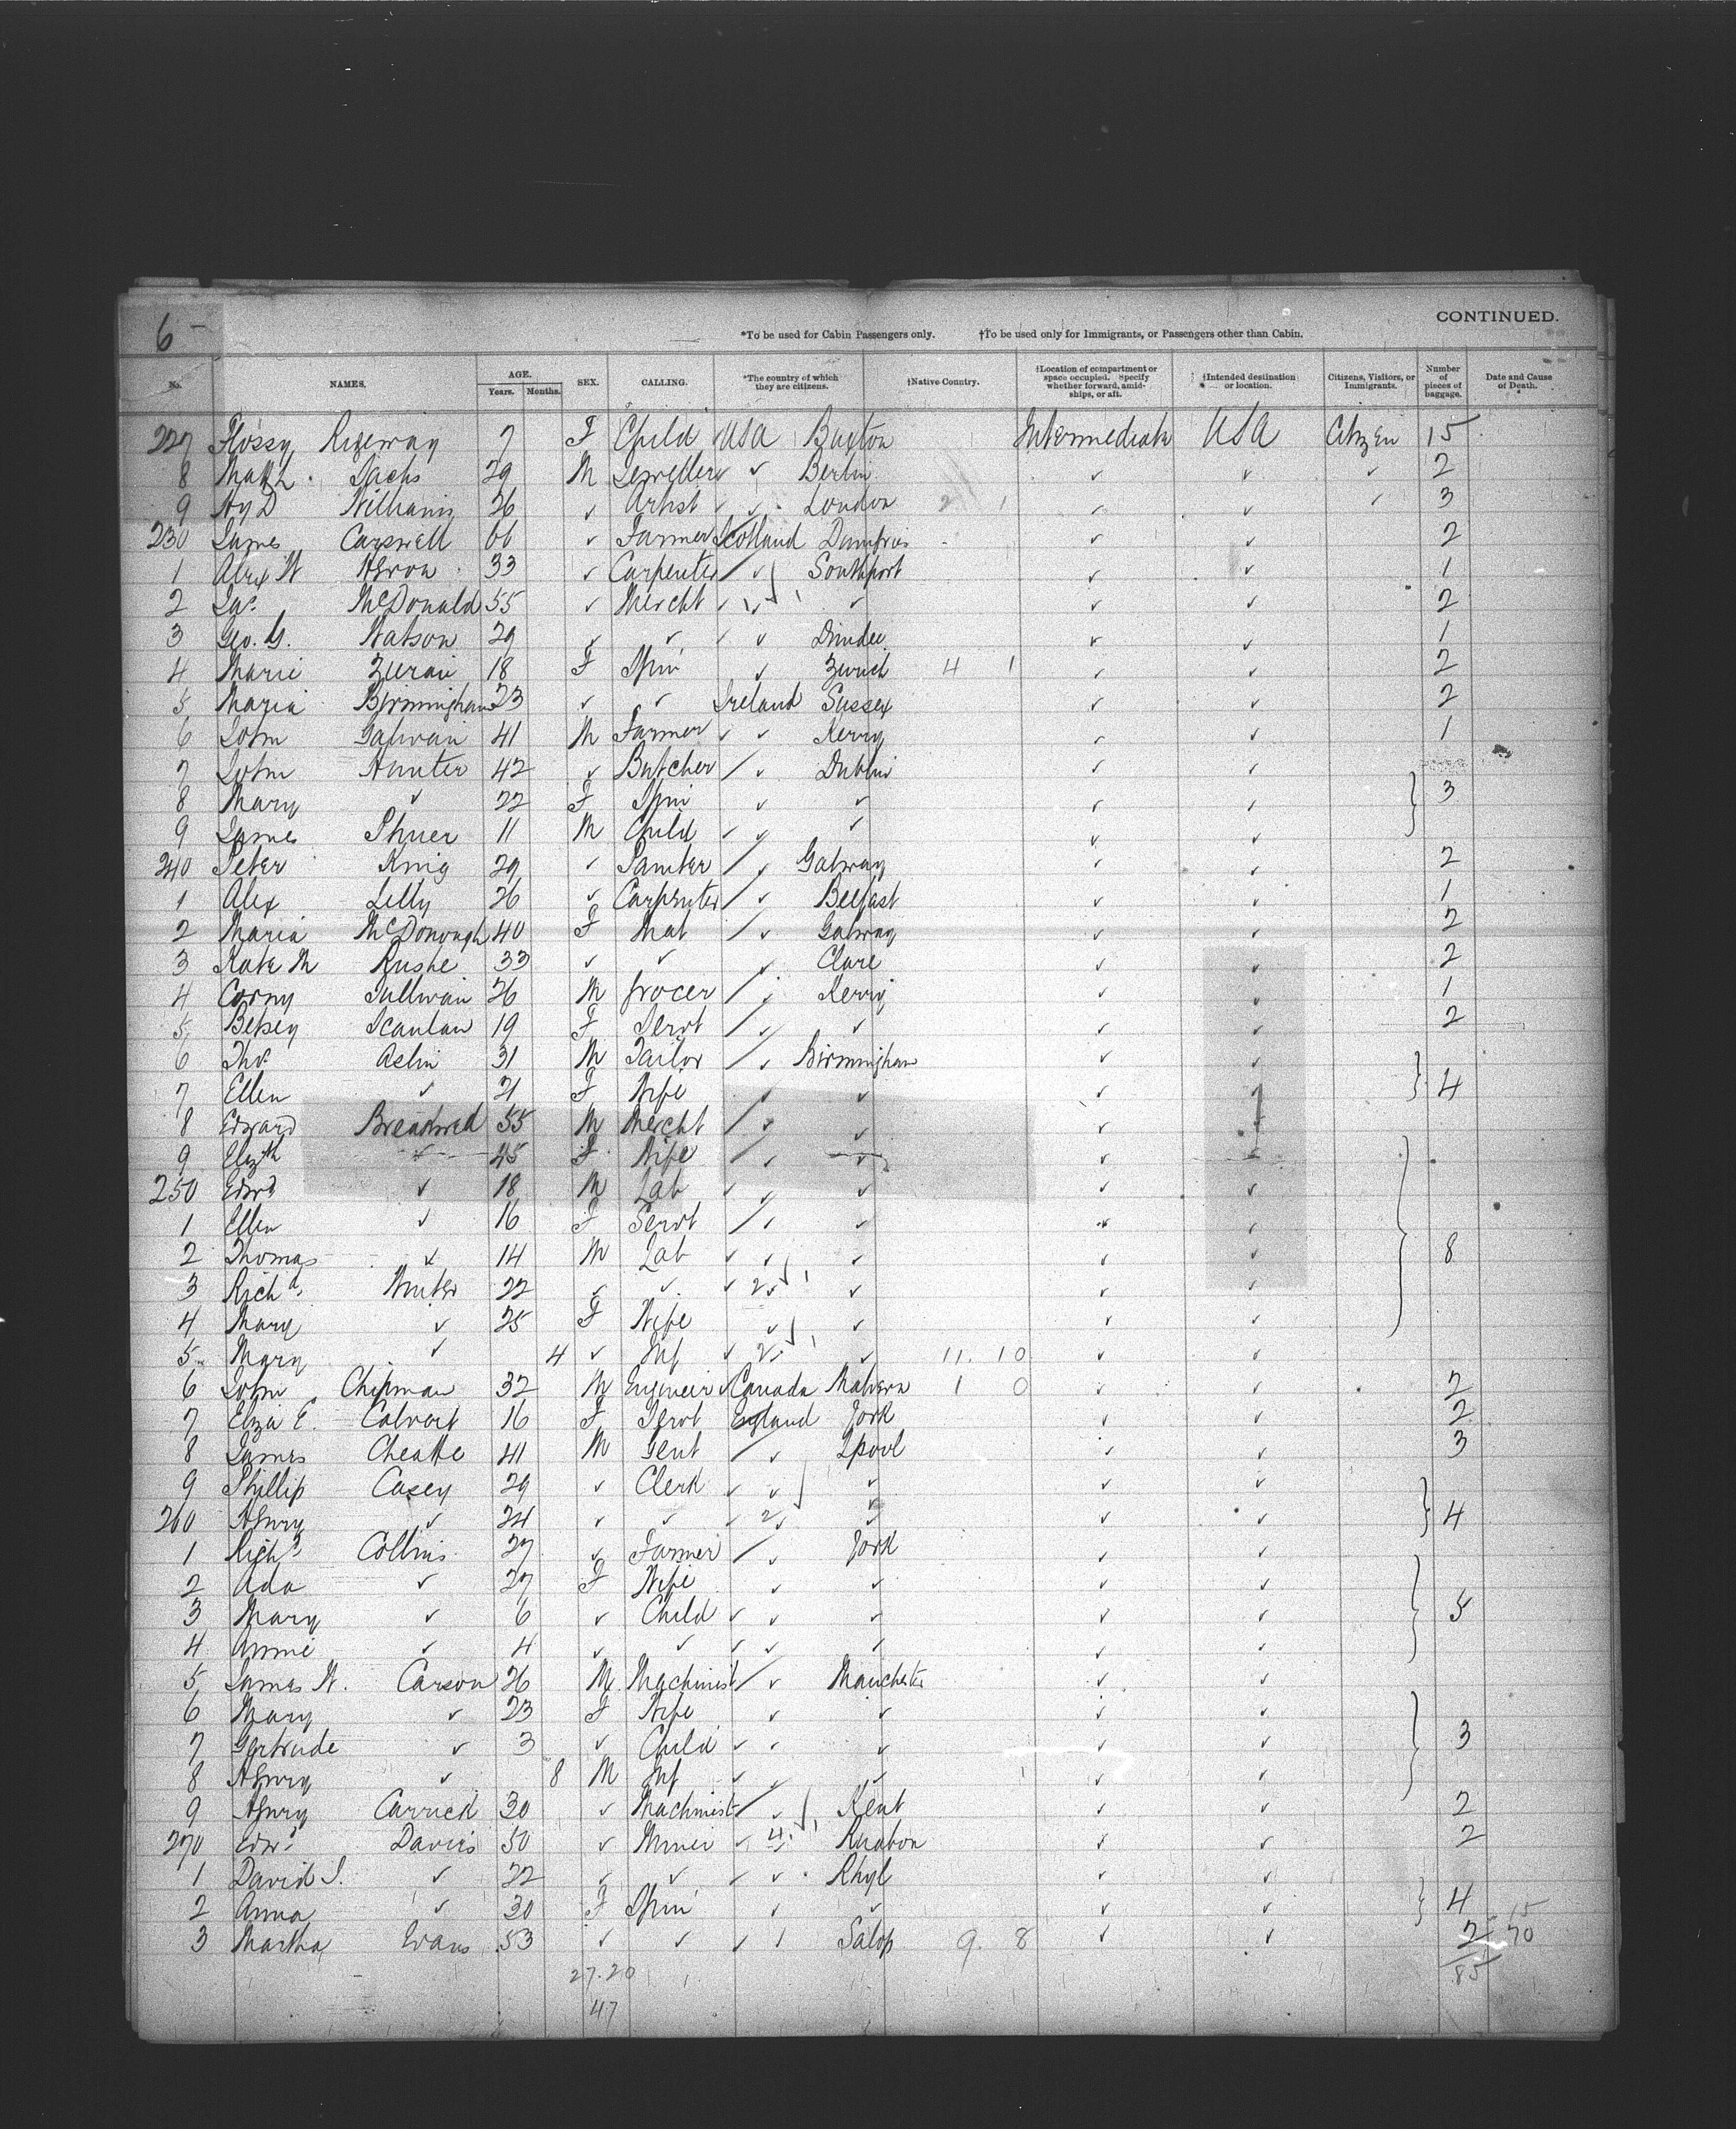 6 –
CONTINUED.
*To be used for Cabin Passengers only. †To be used only for Immigrants, or Passengers other than Cabin.
No. NAMES. AGE. Years. Months. SEX. CALLING. *The country of which they are citizens. †Native Country. †Location of compartment or space occupied. Specify whether forward, amidships, or aft. †Intended destination or location. Citizens, Visitors, or Immigrants. Number of pieces of baggage. Date and Cause of Death.
227 Flossy Ridgway 7 F Child USA Buxton Intermediate USA Citizen 15
8 Sachs 29 M Jeweller ✓ Berlin ✓ ✓ ✓ 2
9 Hy D Williams 26 ✓ Artist ✓ ✓ London 2 1 ✓ ✓ ✓ 3
230 James Carswell 66 ✓ Farmer Scotland Dumfries ✓ ✓ 2
1 Alex W Heron 33 ✓ Carpenter / ✓ Southport ✓ ✓ 1
2 Jas. McDonald 55 ✓ Mercht ✓ ✓ ✓ ✓ ✓ 2
3 Geo. G. Watson 29 ✓ ✓ ✓ ✓ Dundee ✓ ✓ 1
4 Marie 18 F Spin ✓ Zurich 4 1 ✓ ✓ 2
5 Maria Birmingham 23 ✓ ✓ Ireland Sussex ✓ ✓ 2
6 John Galwain 41 M Farmer ✓ ✓ Kerry ✓ ✓ 1
7 John Hunter 42 ✓ Butcher / ✓ Dublin ✓ ✓
8 Mary ✓ 22 F Spin ✓ ✓ ✓ ✓ } 3
9 James 11 M Child ✓ ✓ ✓ ✓ ✓
240 Peter King 29 ✓ Painter / ✓ Galway ✓ ✓ 2
1 Alex Lilly 26 ✓ Carpenter / ✓ Belfast ✓ ✓ 1
2 Maria McDonough 40 F Mat / ✓ Galway ✓ ✓ 2
3 Kate M Rushe 33 ✓ ✓ ✓ Clare ✓ ✓ 2
4 Corny Sullivan 26 M Grocer / ✓ Kerry ✓ ✓ 1
5 Betsey Scanlan 19 F Servt / ✓ ✓ ✓ ✓ 2
6 Tho. Aslin 31 M Tailor / ✓ Birmingham ✓ ✓
7 Ellen ✓ 21 F Wife ✓ ✓ ✓ ✓ } 4
8 Edward 55 M Mercht / ✓ ✓ ✓
9 Elizth ✓ 45 F Wife / ✓ ✓ ✓ ✓
250 Edwd ✓ 18 M Lab ✓ ✓ ✓ ✓ ✓
1 Ellen ✓ 16 F Servt / ✓ ✓ ✓ ✓
2 Thomas ✓ 14 M Lab ✓ ✓ ✓ ✓ ✓ } 8
3 Richd 22 ✓ ✓ ✓ 2 ✓ 1 ✓ ✓ ✓
4 Mary ✓ 25 F Wife ✓ ✓ ✓ ✓
5 Mary ✓ 4 ✓ Inf ✓ 2 1 ✓ 11. 10 ✓ ✓
6 John Chipman 32 M Engineer ✓ Canada Malvern 1 0 ✓ ✓ 2
7 Eliza E. Calvert 16 F Servt England York ✓ ✓ 2
8 James 41 M Gent / ✓ Lpool ✓ ✓ 3
9 Phillip Casey 29 ✓ Clerk ✓ ✓ ✓ ✓ ✓
260 Henry ✓ 24 ✓ ✓ ✓ 2 ✓ ✓ ✓ ✓ } 4
1 Richd Collins 27 ✓ Farmer / ✓ York ✓ ✓
2 Ada ✓ 27 F Wife ✓ ✓ ✓ ✓
3 Mary ✓ 6 ✓ Child ✓ ✓ ✓ ✓ ✓ } 5
4 Annie ✓ 4 ✓ ✓ ✓ ✓ ✓ ✓ ✓
5 James W. Carson 26 M Machinist / ✓ Manchester ✓ ✓
6 Mary ✓ 23 F Wife ✓ ✓ ✓ ✓
7 Gertrude ✓ 3 ✓ Child ✓ ✓ ✓ ✓ ✓ } 3
8 Henry ✓ 8 M Inf ✓ ✓ ✓ ✓ ✓
9 Henry Carrick 30 ✓ Machinist / ✓ 1 Kent ✓ ✓ 2
270 Edwd Davies 50 ✓ Miner ✓ 4 1 Ruabon ✓ ✓ 2
1 David J. ✓ 22 ✓ ✓ ✓ ✓ Rhyl ✓ ✓
2 Anna ✓ 30 F Spin ✓ ✓ ✓ ✓ } 4 15
3 Martha Evans 53 ✓ ✓ ✓ ✓ Salop 9. 8 ✓ ✓ 2 70
27.20 85
47